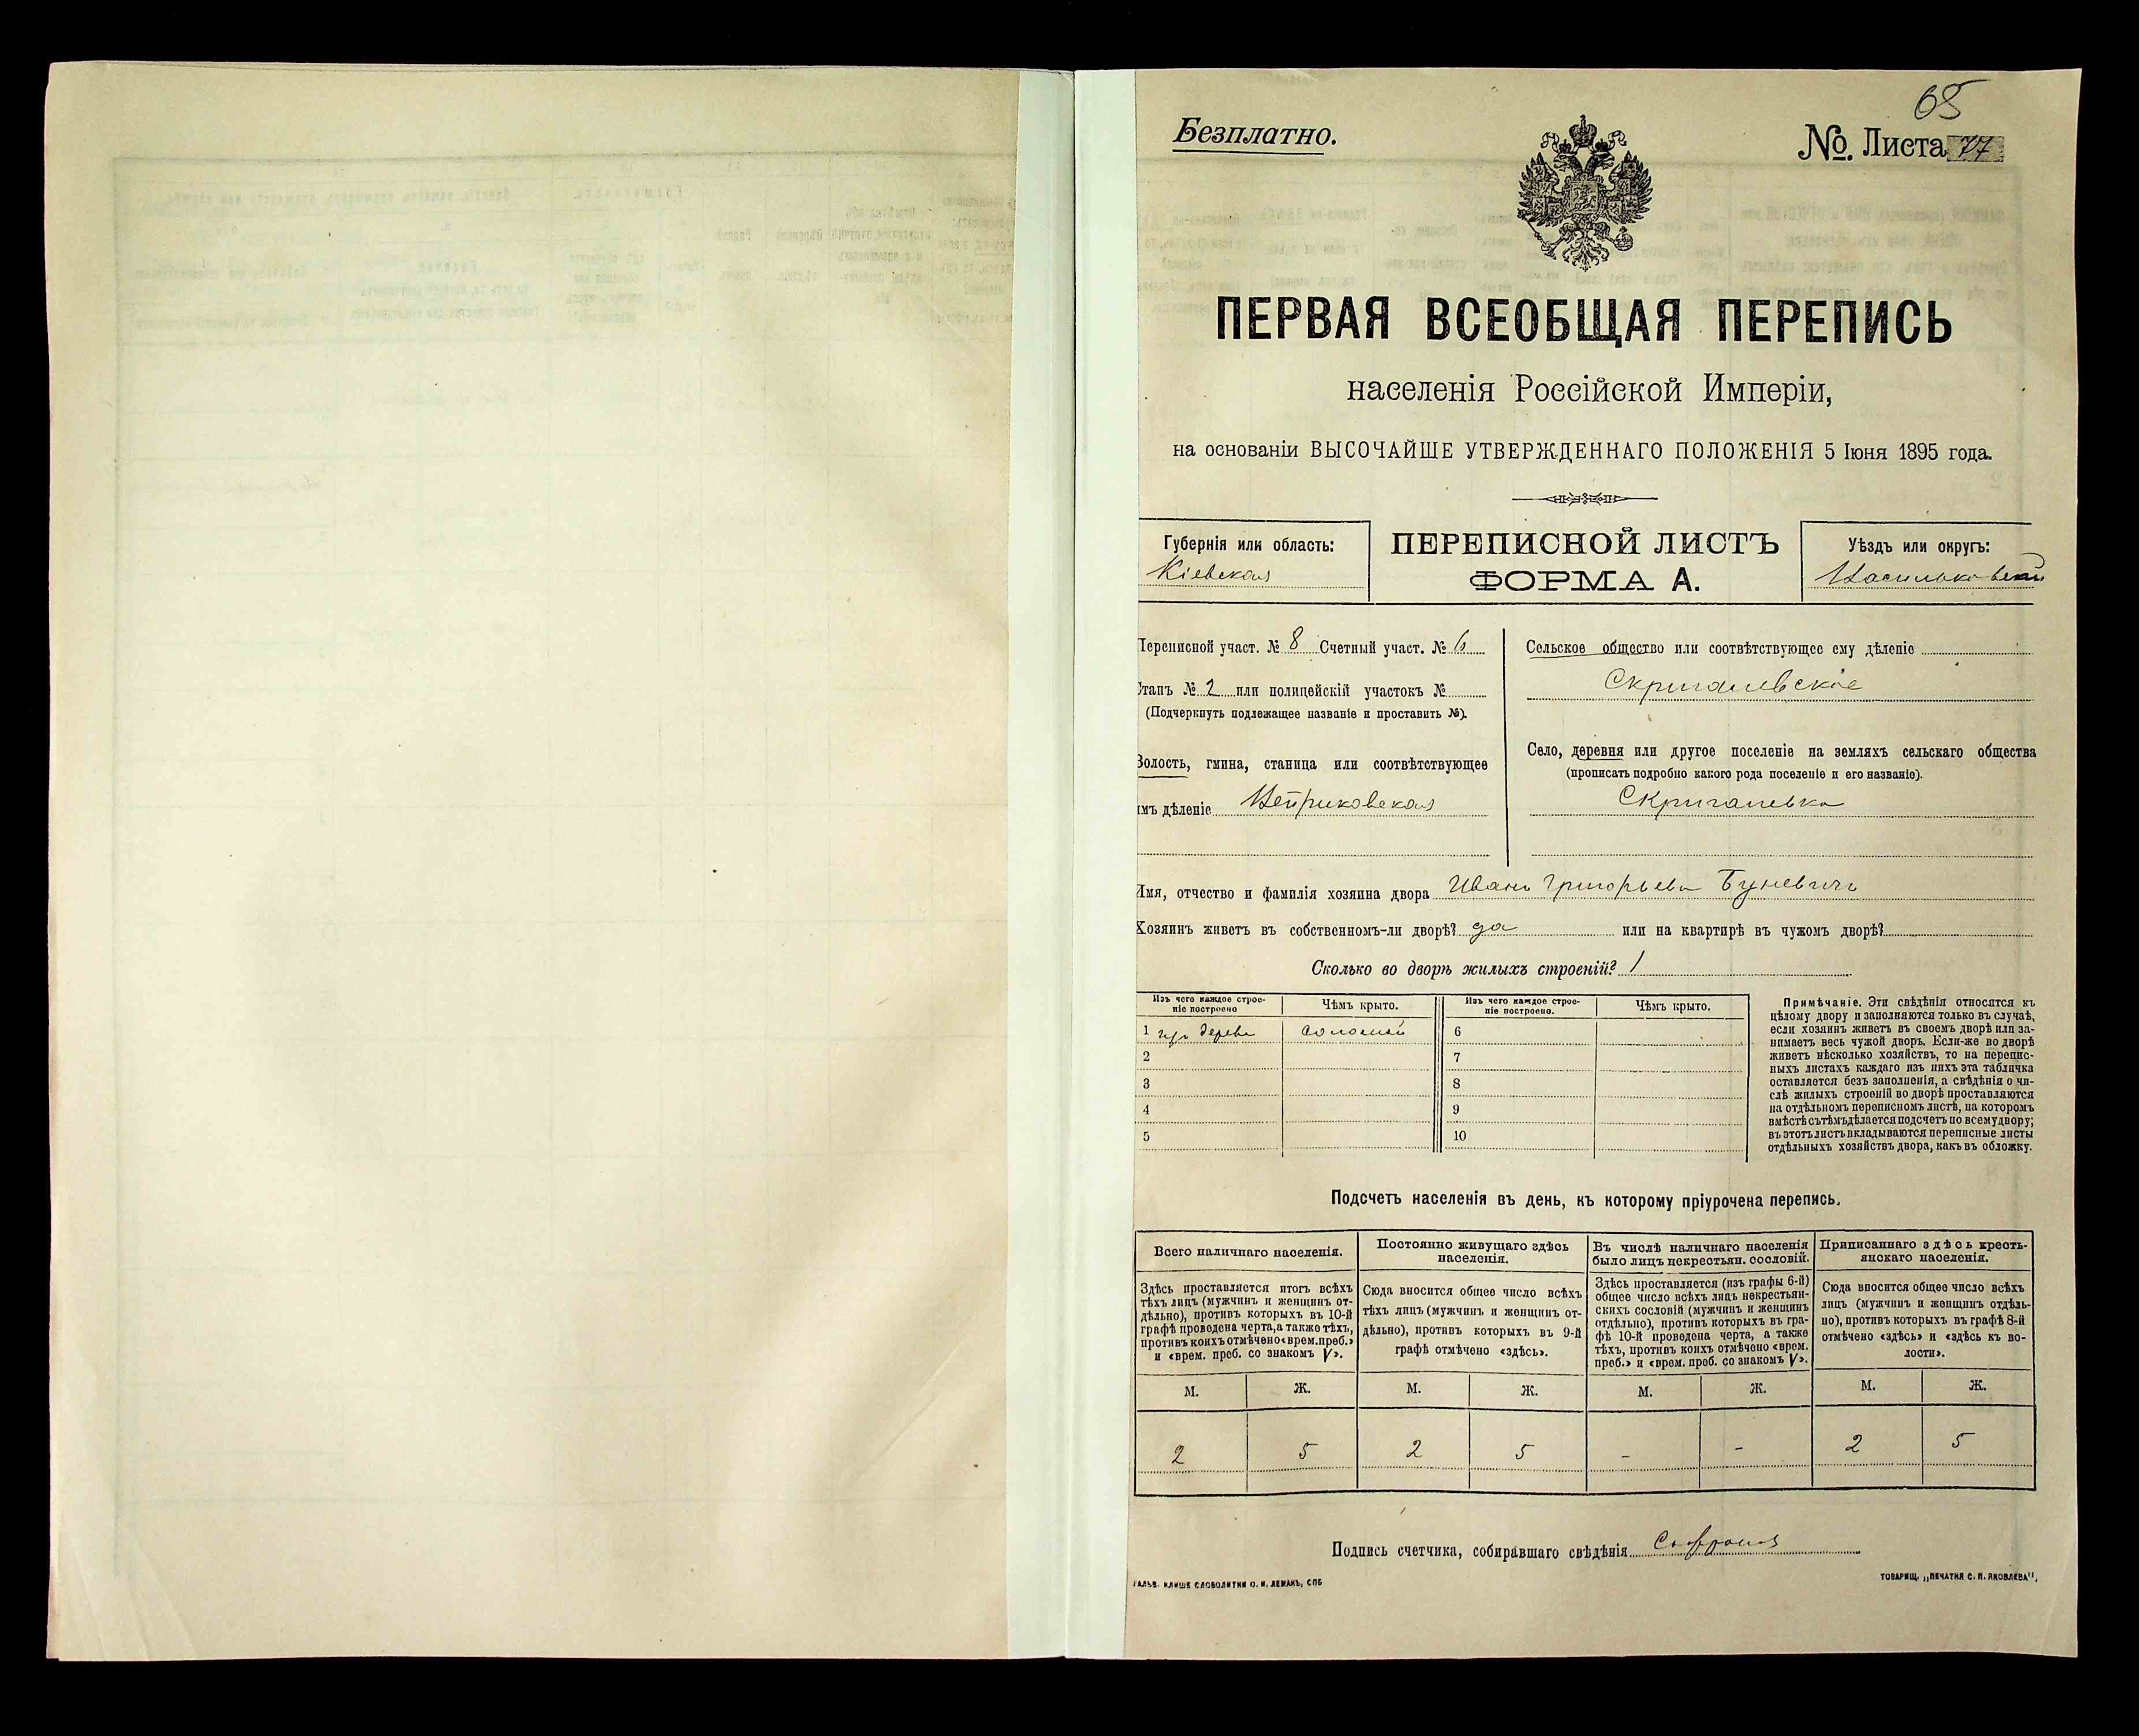 65
Безплатно.
№. Листа 77
ПЕРВАЯ ВСЕОБЩАЯ ПЕРЕПИСЬ
населенія Россійской Имперіи,
на основаніи ВЫСОЧАЙШЕ УТВЕРЖДЕННАГО ПОЛОЖЕНІЯ 5 Іюня 1895 года.
Губернія или область:
Кіевская
ПЕРЕПИСНОЙ ЛИСТЪ
ФОРМА А.
Уѣздъ или округъ:
Васильковскій
Переписной участ. № 8 Счетный участ. № 6
Станъ № 2 или полицейскій участокъ №
(Подчеркнуть подлежащее названіе и проставить №).
Волость, гмина, станица или соотвѣтствующее
имъ дѣленіе
Сельское общество или соотвѣтствующее ему дѣленіе
Скригалевское
Село, деревня или другое поселеніе на земляхъ сельскаго общества
(прописать подробно какого рода поселеніе и его названіе).
Скригалевка
Имя, отчество и фамилія хозяина двора Иванъ Григорьевъ Буневичъ
Хозяинъ живетъ въ собственномъ-ли дворѣ? да или на квартирѣ въ чужомъ дворѣ?
Сколько во дворѣ жилыхъ строеній? 1
Изъ чего каждое строе-
ніе построено
Чѣмъ крыто.
Изъ чего каждое строе-
ніе построено.
Чѣмъ крыто.
1 изъ дерева соломой 6
2 7
3 8
4 9
5 10
Примѣчаніе. Эти свѣдѣнія относятся къ
цѣлому двору и заполняются только въ случаѣ,
если хозяинъ живетъ въ своемъ дворѣ или за-
нимаетъ весь чужой дворъ. Если-же во дворѣ
живетъ нѣсколько хозяйствъ, то на перепис-
ныхъ листахъ каждаго изъ нихъ эта табличка
оставляется безъ заполненія, а свѣдѣнія о чи-
слѣ жилыхъ строеній во дворѣ проставляются
на отдѣльномъ переписномъ листѣ, на которомъ
вмѣстѣ съ тѣмъ дѣлается подсчетъ по всему двору;
въ этотъ листъ вкладываются переписные листы
отдѣльныхъ хозяйствъ двора, какъ въ обложку.
Подсчетъ населенія въ день, къ которому пріурочена перепись.
Всего наличнаго населенія.
Здѣсь проставляется итогъ всѣхъ
тѣхъ лицъ (мужчинъ и женщинъ от-
дѣльно), противъ которыхъ въ 10-й
графѣ проведена черта, а также тѣхъ,
противъ коихъ отмѣчено «врем. преб.»
и «врем. преб. со знакомъ V».
Постоянно живущаго здѣсь
населенія.
Сюда вносится общее число всѣхъ
тѣхъ лицъ (мужчинъ и женщинъ от-
дѣльно), противъ которыхъ въ 9-й
графѣ отмѣчено «здѣсь».
Въ числѣ наличнаго населенія
было лицъ некрестьян. сословій.
Здѣсь проставляется (изъ графы 6-й)
общее число всѣхъ лицъ некрестьян-
скихъ сословій (мужчинъ и женщинъ
отдѣльно), противъ которыхъ въ гра-
фѣ 10-й проведена черта, а также
тѣхъ, противъ коихъ отмѣчено «врем.
преб.» и «врем. преб. со знакомъ V».
Приписаннаго здѣсь кресть-
янскаго населенія.
Сюда вносится общее число всѣхъ
лицъ (мужчинъ и женщинъ отдѣль-
но), противъ которыхъ въ графѣ 8-й
отмѣчено «здѣсь» и «здѣсь къ во-
лости».
М. Ж. М. Ж. М. Ж. М. Ж.
2 5 2 5 - - 2 5
Подпись счетчика, собиравшаго свѣдѣнія
ГАЛЬВ. КЛИШЕ СЛОВОЛИТНИ О. И. ЛЕМАНЪ, СПБ
ТОВАРИЩ. „ПЕЧАТНЯ С. П. ЯКОВЛЕВА",